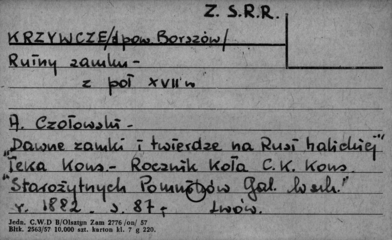 Z. S. R. R.
KRZYWCZE /dpow. Borszów/
Ruiny zamku -
z poł XVII w
A. Czołowski -
"Dawne zamki i twierdze na Rusi halickiej"
"Teka Kons. - Rocznik Koła C. K. Kons.
"Starożytnych Pomników Gal. Wsch."
r. 1882. s. 87, Lwów.
Jedn. C.W.D B/Olsztyn Zam 2776/on/57
Bltk. 2563/57 10.000 szt. karton kl. 7 g 220.